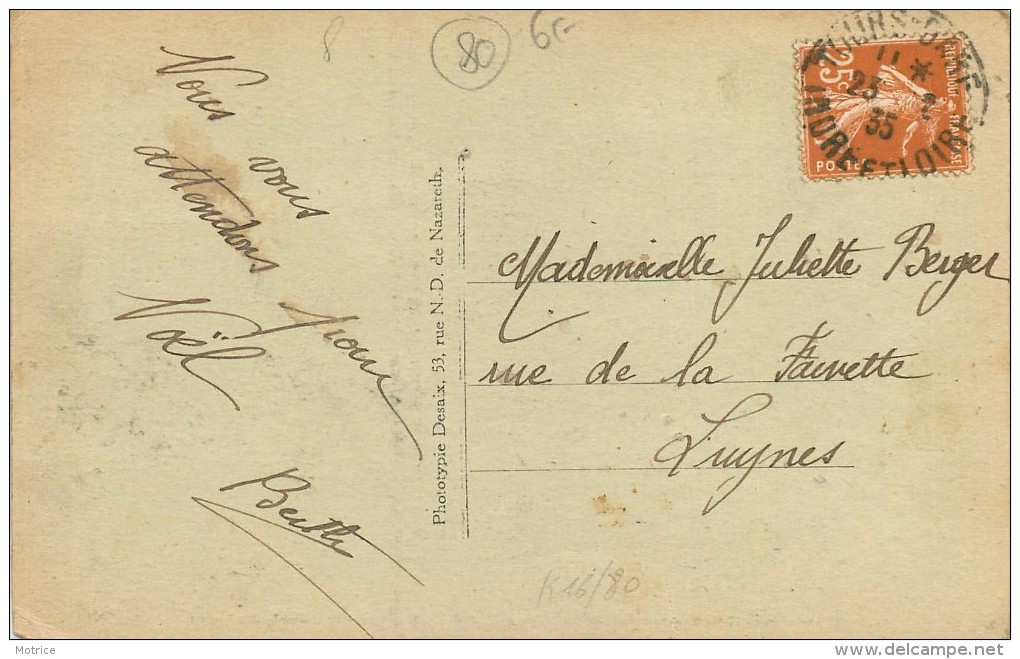 Nous
vous
attendons
pour
Noël
Berthe
80
6
Phototypie Desaix, 53, rue N.-D. de Nazareth.
TOURS-GARE
11 *
23 2
35
INDRE ET LOIRE
REPUBLIQUE FRANÇAISE
25c
POSTES
Mademoiselle Juliette Berger
rue de la Fauvette
Luynes
K16/80
Motrice
delcampe.net